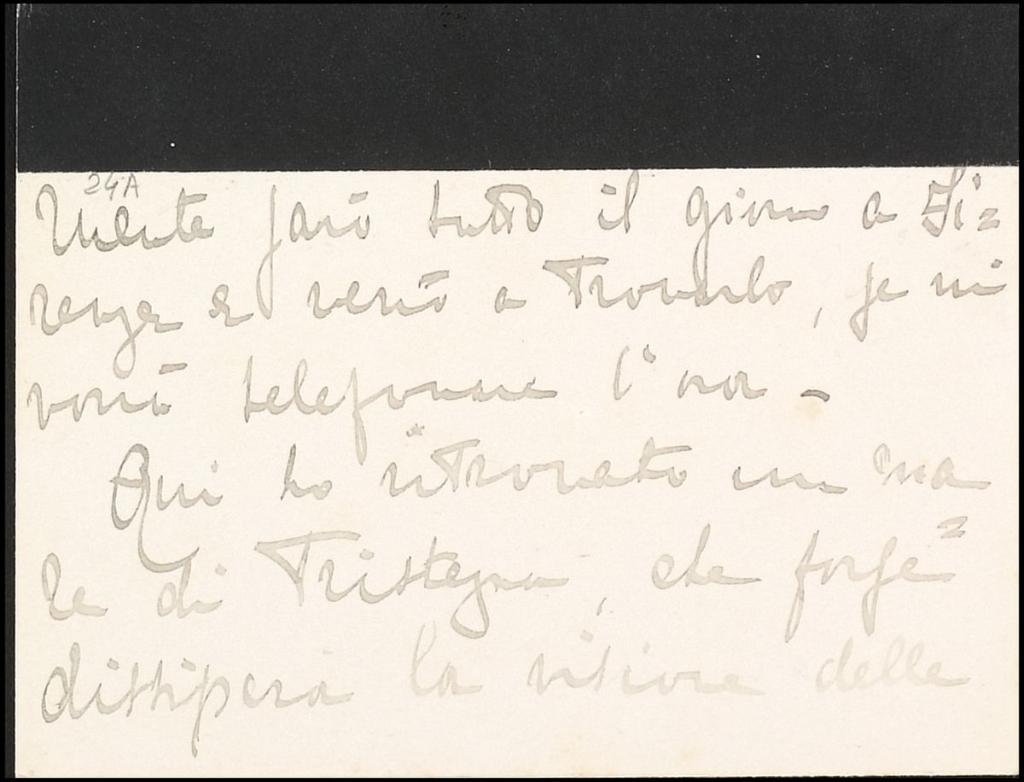 24A
Mente sarò tutto il giorno a Fi=
renze e verrò a trovarlo, se mi
vorrà telefonare l'ora -
Qui ho ritrovato un ma
re di Tristezza, che forse=
dissiperà la visione delle